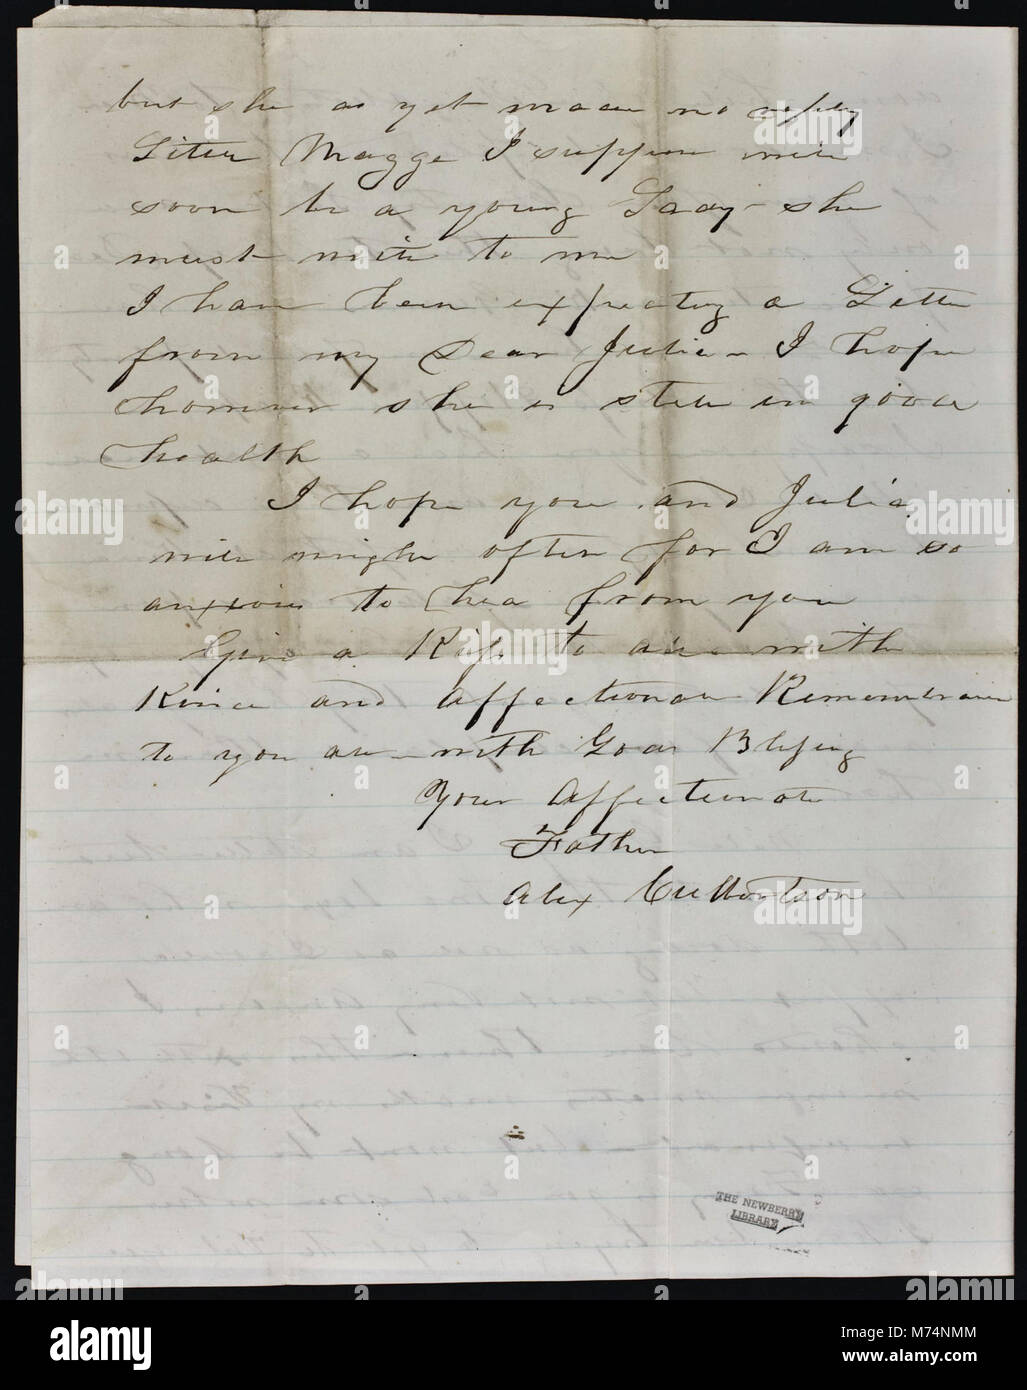 but she as yet made no reply
Little Magge I suppose will
soon be a young Lady - she
must write to me
I have been expecting a Letter
from my Dear Julia - I hope
however she is still in good
health
I hope you and Julia
will might often for I am so
anxious to hea from you
Give a Kiss to all with
Kind and affectionate Remembrance
to you all - with Gods Blessing
Your Affectionate
Father
Alex Culbertson
THE NEWBERRY
LIBRARY
alamy
M74NMM
www.alamy.com